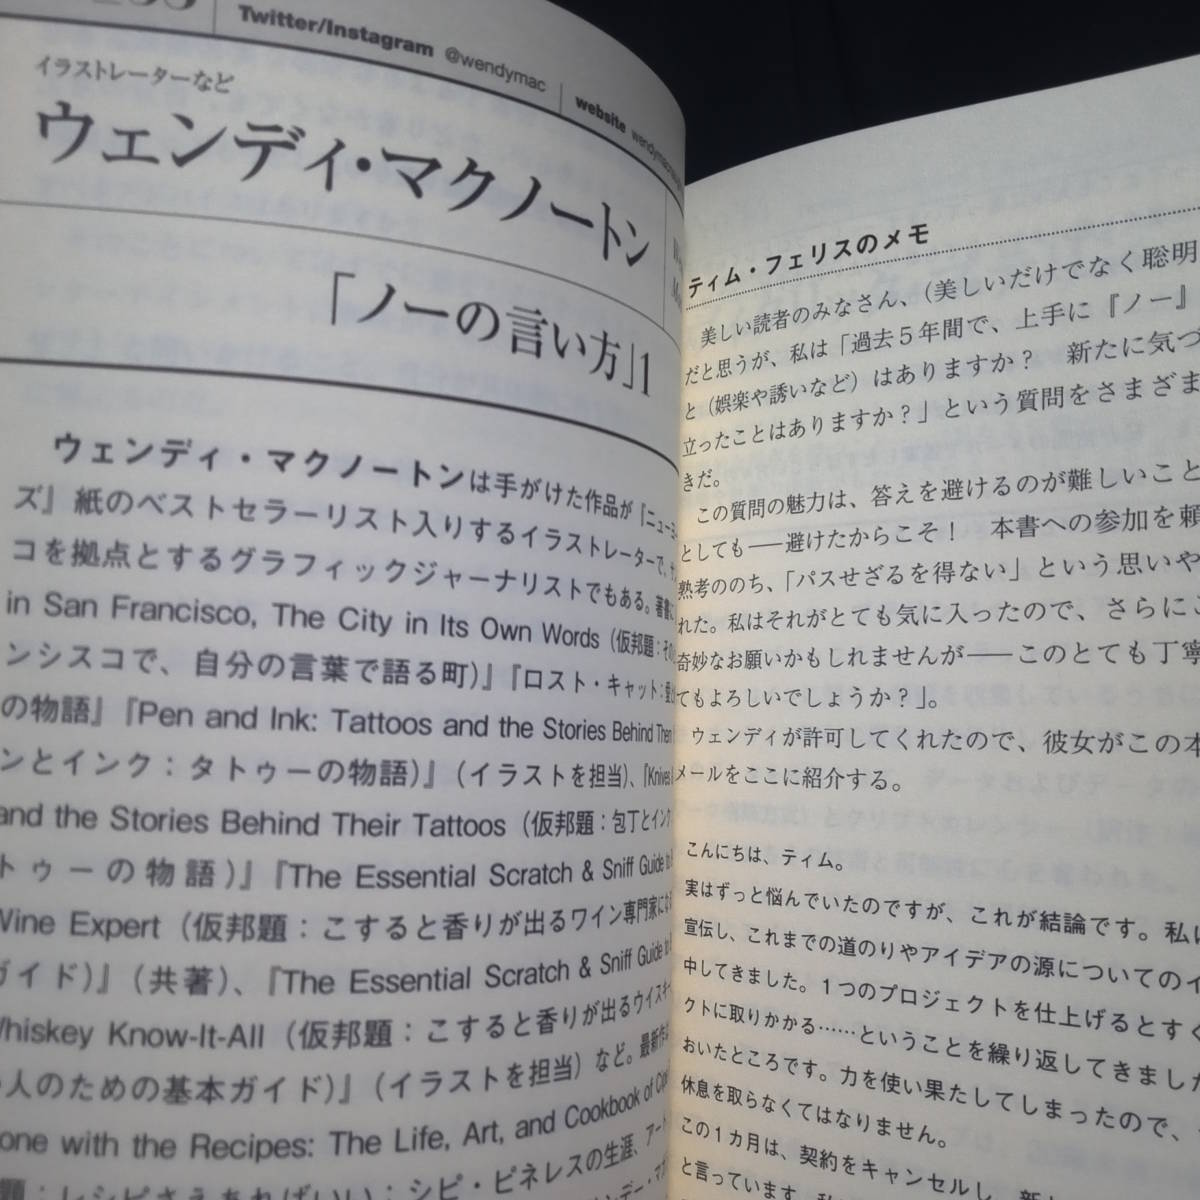 Twitter/Instagram @wendymac
website
イラストレーターなど
ウェンディ・マクノートン
「ノーの言い方」1
ウェンディ・マクノートンは手がけた作品が『ニュー
ズ』紙のベストセラーリスト入りするイラストレーターで、
コを拠点とするグラフィックジャーナリストでもある。著書に
in San Francisco, The City in Its Own Words（仮邦題：
ンシスコで、自分の言葉で語る町）』『ロスト・キャット：
の物語』『Pen and Ink: Tattoos and the Stories Behind Them
ンとインク：タトゥーの物語）』（イラストを担当）、『Knives
and the Stories Behind Their Tattoos（仮邦題：包丁とインク
トゥーの物語）』『The Essential Scratch & Sniff Guide to
Wine Expert（仮邦題：こすると香りが出るワイン専門家にな
ガイド）』（共著）、『The Essential Scratch & Sniff Guide to
Whiskey Know-It-All（仮邦題：こすると香りが出るウイスキー
人のための基本ガイド）』（イラストを担当）など。最新作
one with the Recipes: The Life, Art, and Cookbook of
題：レシピさえあればいい：シピ・ピネレスの生涯、アート
ティム・フェリスのメモ
美しい読者のみなさん、（美しいだけでなく聡明
だと思うが、私は「過去５年間で、上手に『ノー』
と（娯楽や誘いなど）はありますか？　新たに気づ
立ったことはありますか？」という質問をさまざま
きだ。
この質問の魅力は、答えを避けるのが難しいこと
としても――避けたからこそ！　本書への参加を頼
熟考ののち、「パスせざるを得ない」という思いや
れた。私はそれがとても気に入ったので、さらに
奇妙なお願いかもしれませんが――このとても丁寧
てもよろしいでしょうか？」。
ウェンディが許可してくれたので、彼女がこの本
メールをここに紹介する。
こんにちは、ティム。
実はずっと悩んでいたのですが、これが結論です。私は
宣伝し、これまでの道のりやアイデアの源についてのイ
中してきました。１つのプロジェクトを仕上げるとすぐ
クトに取りかかる……ということを繰り返してきました
おいたところです。力を使い果たしてしまったので、
休息を取らなくてはなりません。
この１カ月は、契約をキャンセルし、新
と言っています。私